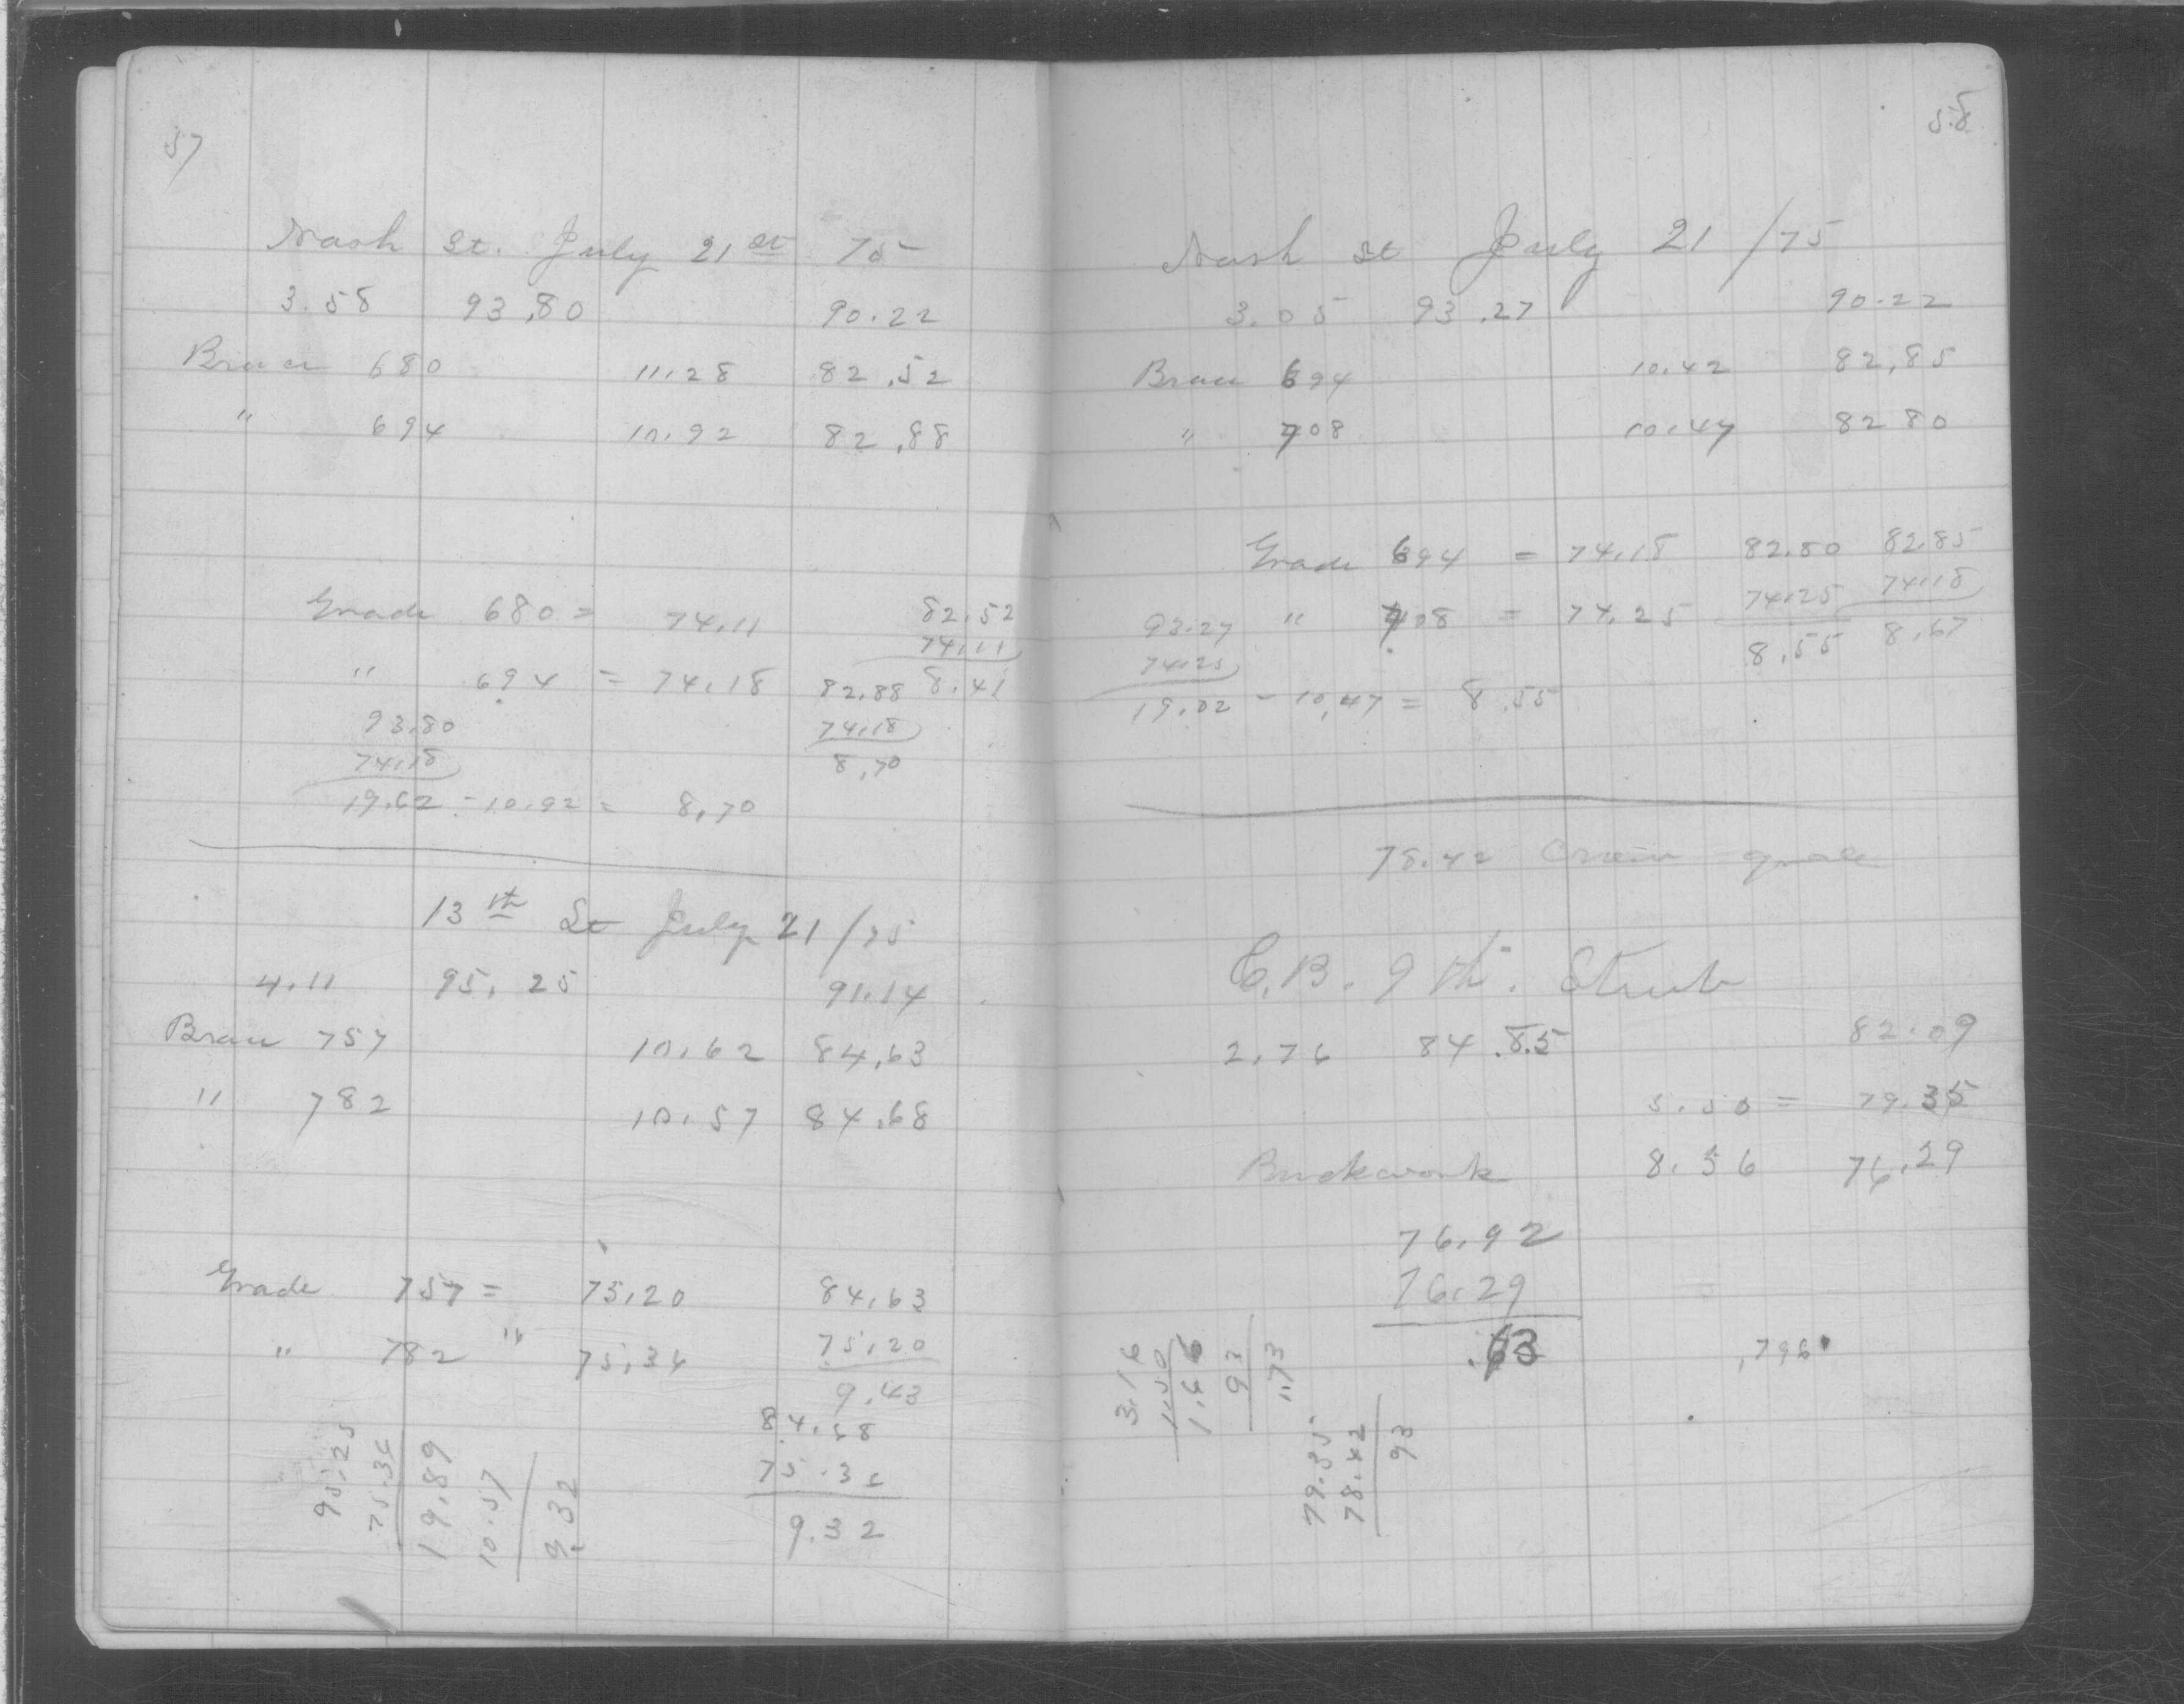 57
Nash St. July 21st 75
3.58 93.80 90.22
Brace 680 11.28 82.52
" 694 10.92 82.88
Grade 680 = 74.11 82.52
74.11
" 694 = 74.18 82.88 8.41
93.80 74.18
74.18 8.70
19.62 - 10.92 = 8.70
13th St July 21/75
4.11 95.25 91.14
Brace 757 10.62 84.63
" 782 10.57 84.68
Grade 757 = 75.20 84.63
" 782 " 75.36 75.20
9.43
84.68
75.36
9.32
95.25
75.36
19.89
10.57
9.32
58
Nash St July 21/75
3.05 93.27 90.22
Brace 694 10.42 82.85
" 708 10.47 82 80
Grade 694 = 74.18 82.80 82.85
93.27 " 708 = 74.25 74.25 74.18
74.25 8.55 8.67
19.02 - 10.47 = 8.55
78.42 grade
C.B. 9th. Street
2.76 84.85 82.09
5.50 = 79.35
Brickwork 8.56 76.29
76.92
76.29
.63 .796
3.16
1.50
1.66
93
1.73
79.35
78.42
93